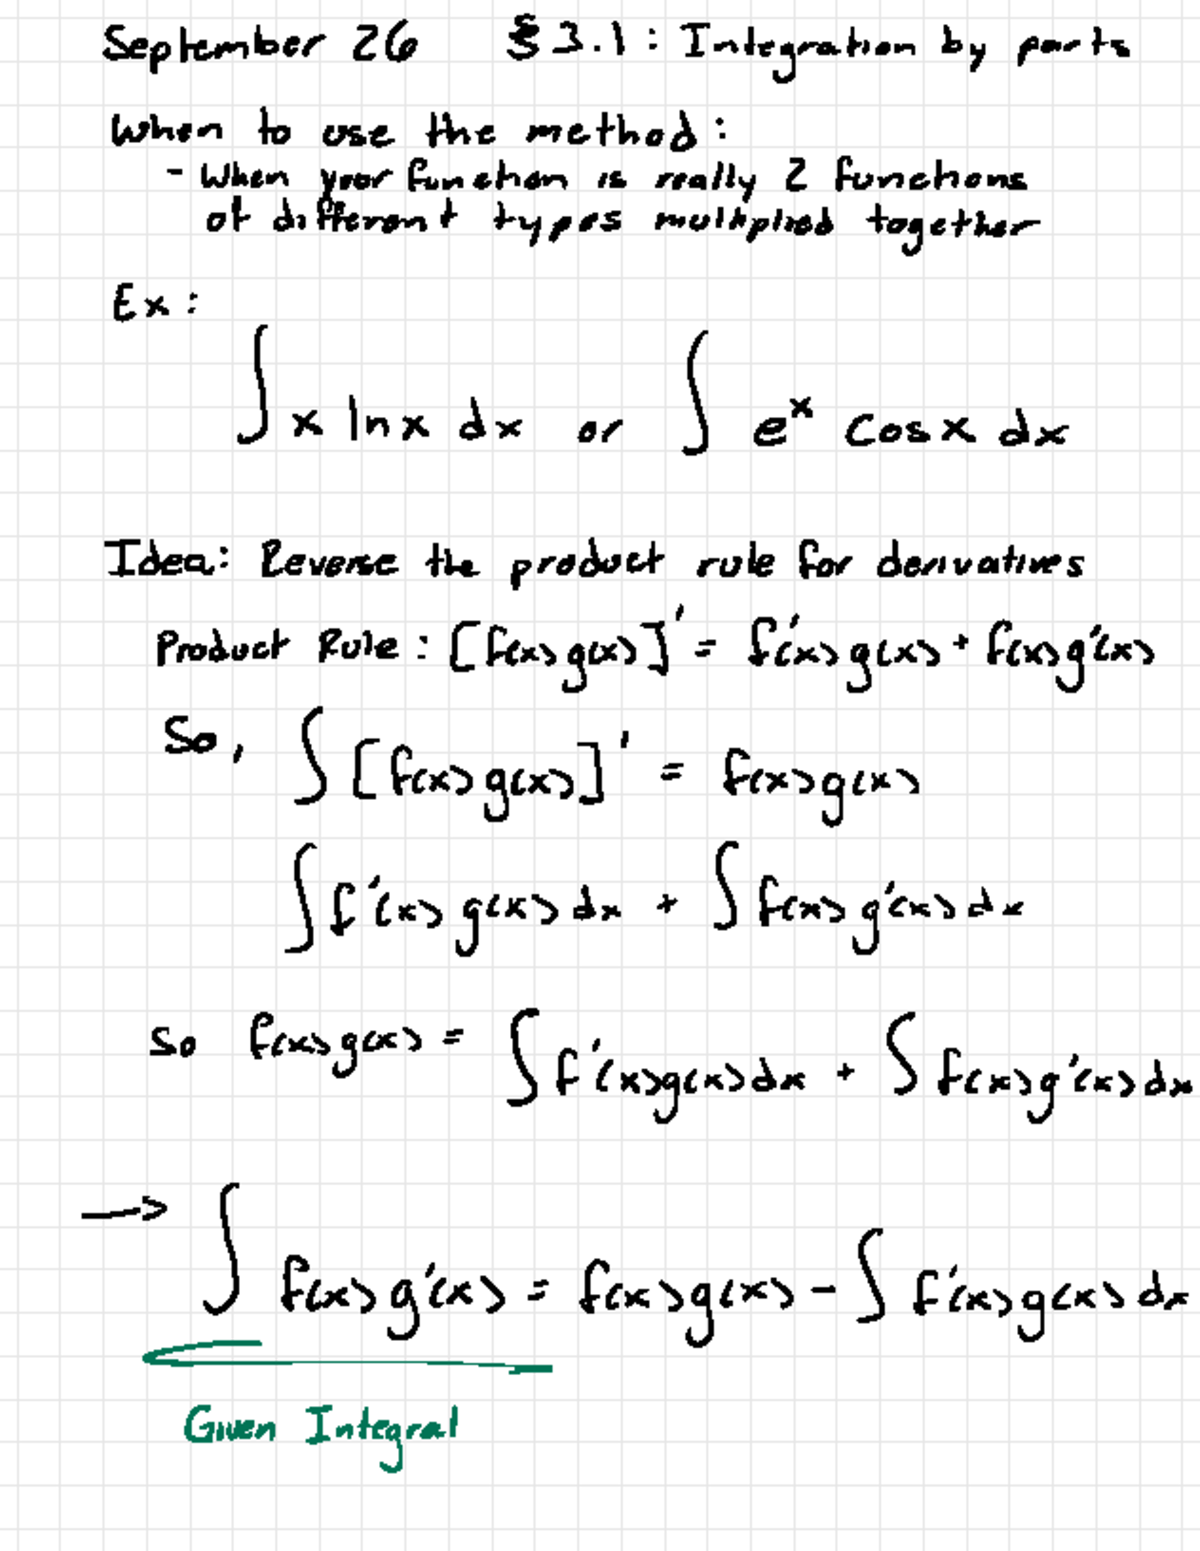 September 26 § 3.1: Integration by parts
When to use the method:
- When your function is really 2 functions
of different types multiplied together
Ex:
∫ x ln x dx or ∫ eˣ cos x dx
Idea: Reverse the product rule for derivatives
Product Rule: [f(x)g(x)]' = f'(x)g(x) + f(x)g'(x)
So, ∫ [f(x)g(x)]' = f(x)g(x)
∫ f'(x)g(x)dx + ∫ f(x)g'(x)dx
so f(x)g(x) = ∫ f'(x)g(x)dx + ∫ f(x)g'(x)dx
→ ∫ f(x)g'(x) = f(x)g(x) - ∫ f'(x)g(x)dx
Given Integral